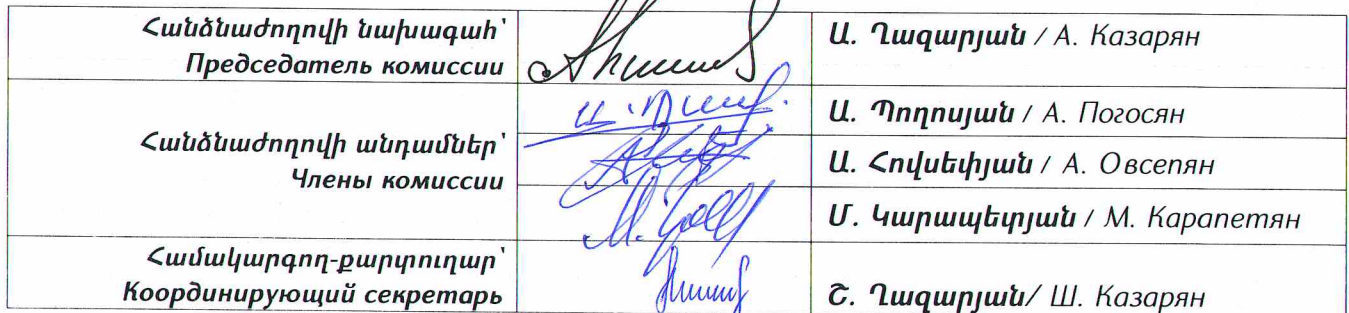 Հանձնաժողովի նախագահ՝
Председатель комиссии
Ա. Ղազարյան / А. Казарян
Հանձնաժողովի անդամներ՝
Члены комиссии
Ա. Պողոսյան / А. Погосян
Ա. Հովսեփյան / А. Овсепян
Մ. Կարապետյան / М. Карапетян
Համակարգող-քարտուղար՝
Координирующий секретарь
Շ. Ղազարյան/ Ш. Казарян